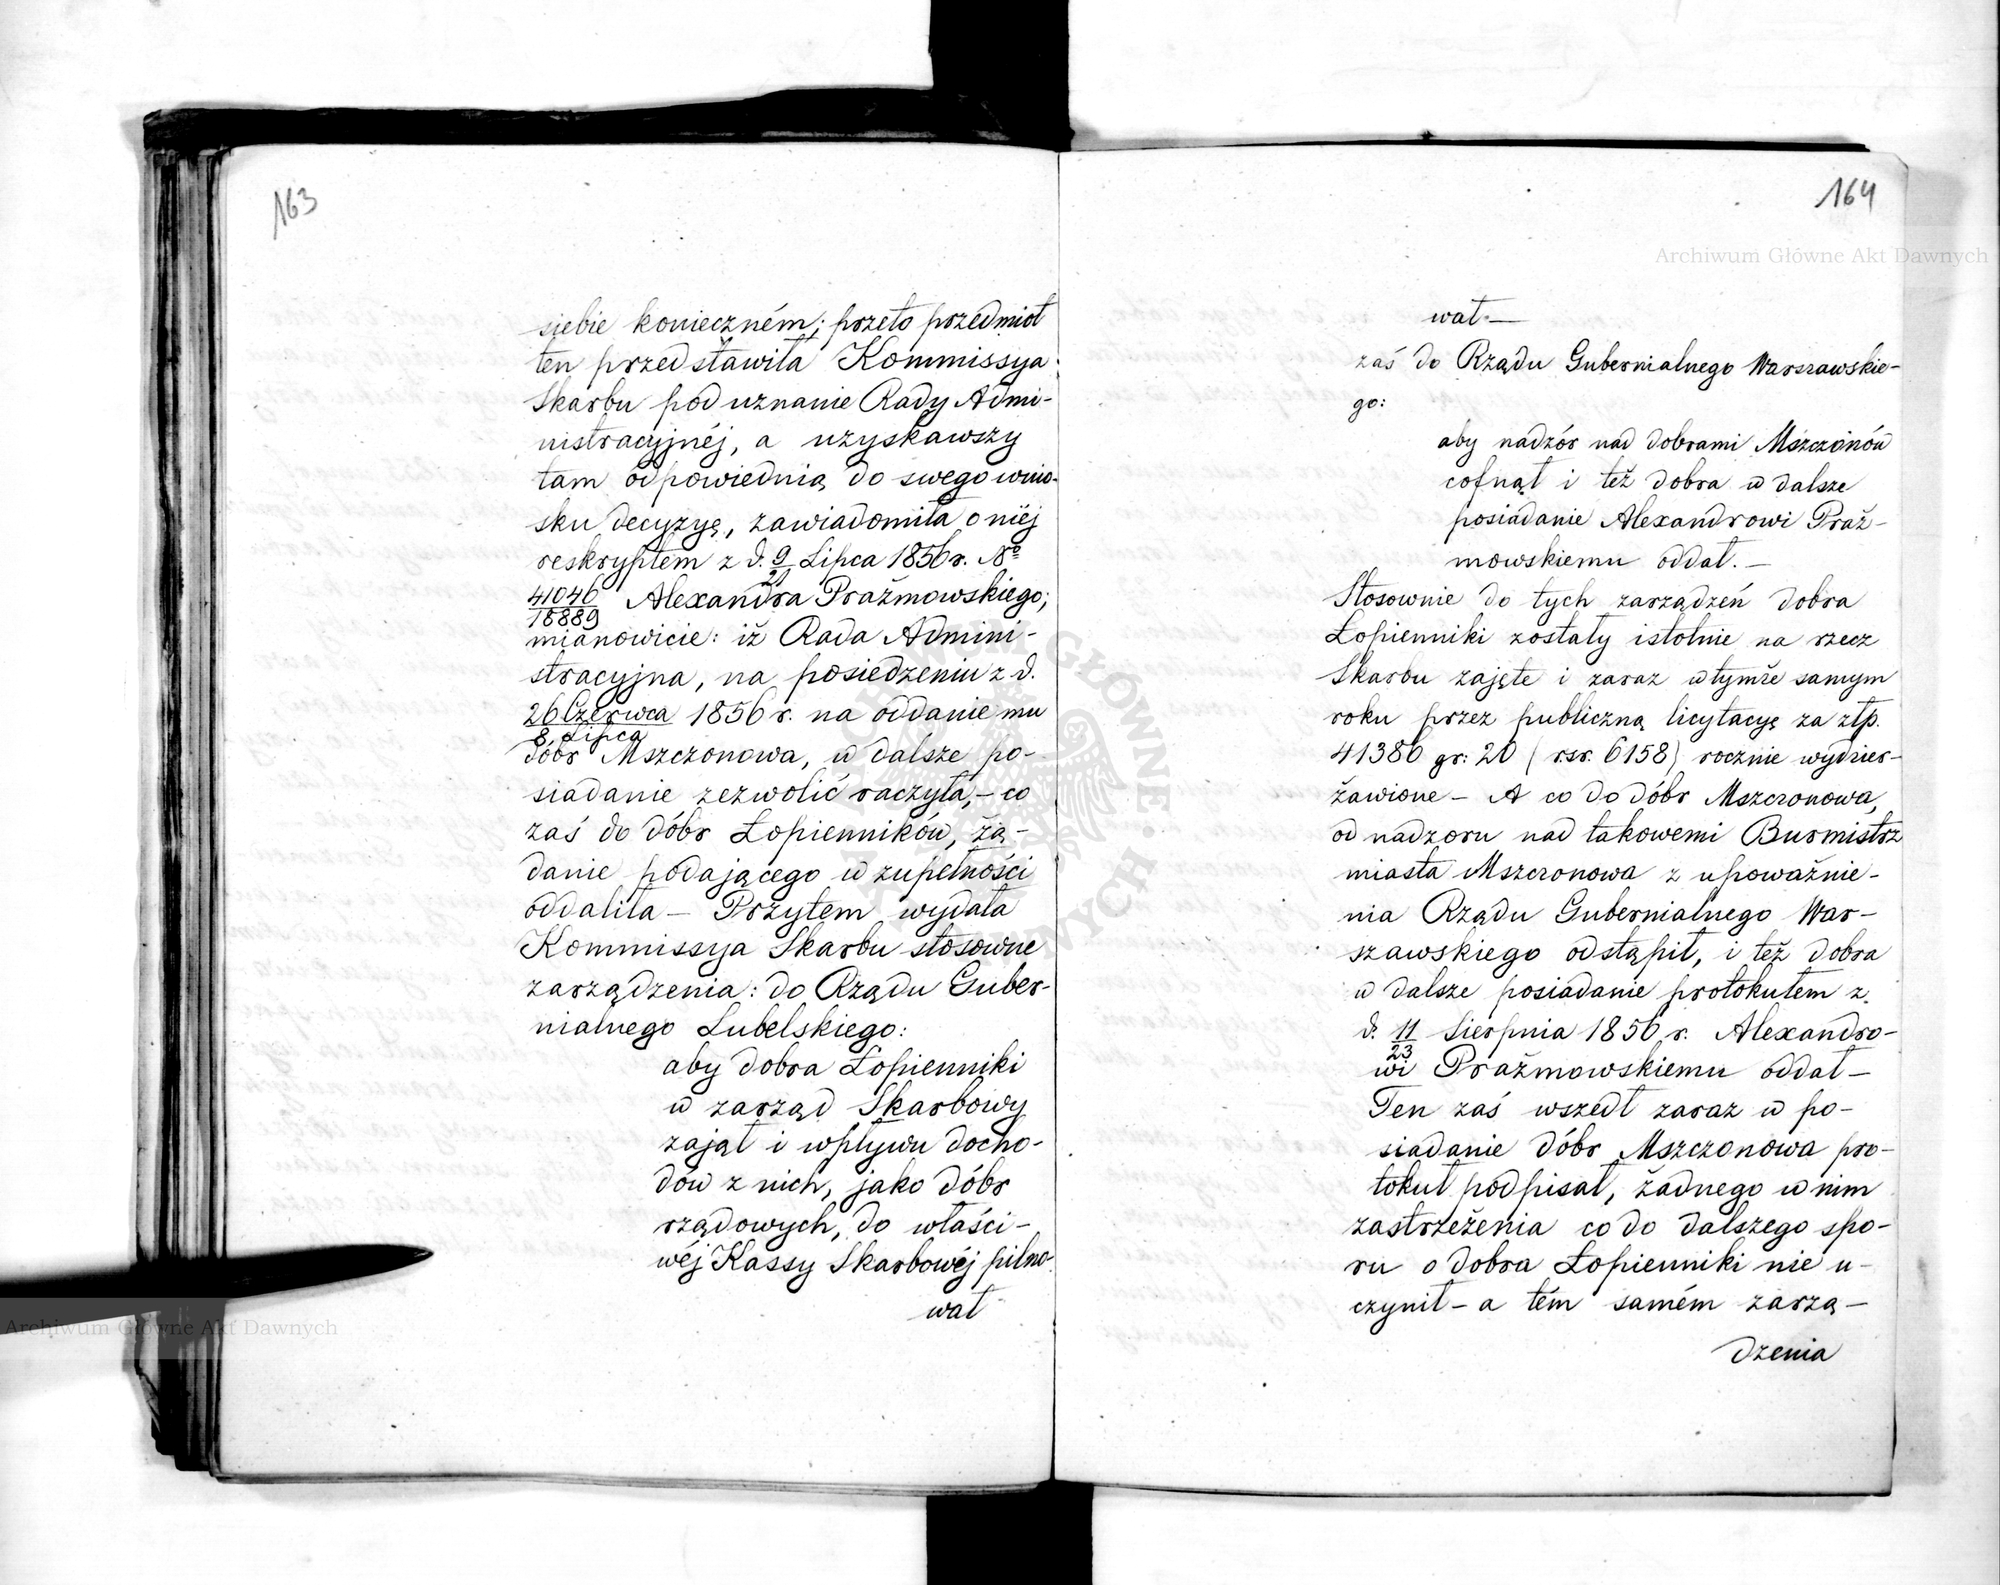 163
siebie konieczném; przeto przedmiot
ten przedstawiła Kommissya
Skarbu pod uznanie Rady Admi-
nistracyjnéj, a uzyskawszy
tam odpowiednią do swego wnio-
sku decyzyę, zawiadomiła o niéj
reskryptem z d. 9/21 Lipca 1856 r. №
41046/18889 Alexandra Prażmowskiego;
mianowicie: iż Rada Admini-
stracyjna, na posiedzeniu z d.
26 Czerwca/8 Lipca 1856 r. na oddanie mu
dóbr Mszczonowa, w dalsze po-
siadanie zezwolić raczyła, – co
zaś do dóbr Łopienników, żą-
danie podającego w zupełności
oddaliła – Przytem wydała
Kommissya Skarbu stosowne
zarządzenia: do Rządu Guber-
nialnego Lubelskiego:
aby dobra Łopienniki
w zarząd Skarbowy
zajął i wpływu docho-
dów z nich, jako dóbr
rządowych, do właści-
wéj Kassy Skarbowéj pilno-
wał
164
wał –
zaś do Rządu Gubernialnego Warszawskie-
go:
aby nadzór nad dobrami Mszczonów
cofnął i też dobra w dalsze
posiadanie Alexandrowi Praż-
mowskiemu oddał. –
Stosownie do tych zarządzeń dobra
Łopienniki zostały istotnie na rzecz
Skarbu zajęte i zaraz w tymże samym
roku przez publiczną licytacyę za złp.
41380 gr: 20 (rsr. 6158) rocznie wydzier-
żawione – A co do dóbr Mszczonowa,
od nadzoru nad takowemi Burmistrz
miasta Mszczonowa z upoważnie-
nia Rządu Gubernialnego War-
szawskiego odstąpił, i też dobra
w dalsze posiadanie protokułem z
d. 11/23 Sierpnia 1856 r. Alexandro-
wi Prażmowskiemu oddał –
Ten zaś wszedł zaraz w po-
siadanie dóbr Mszczonowa pro-
tokuł podpisał, żadnego w nim
zastrzeżenia co do dalszego spo-
ru o dobra Łopienniki nie u-
czynił – a tém samém zarzą-
dzenia
Archiwum Główne Akt Dawnych
Archiwum Główne Akt Dawnych